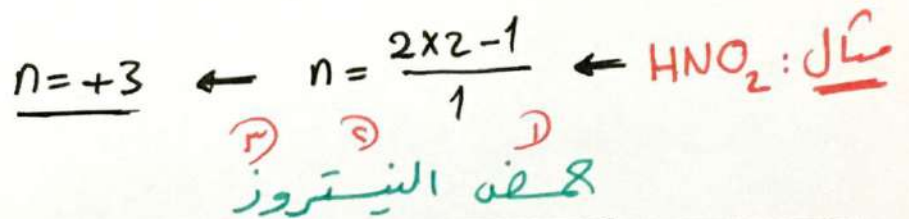 مثال: HNO₂ ← n = (2×2-1)/1 ← n = +3
① ② ③
حمض النيتروز